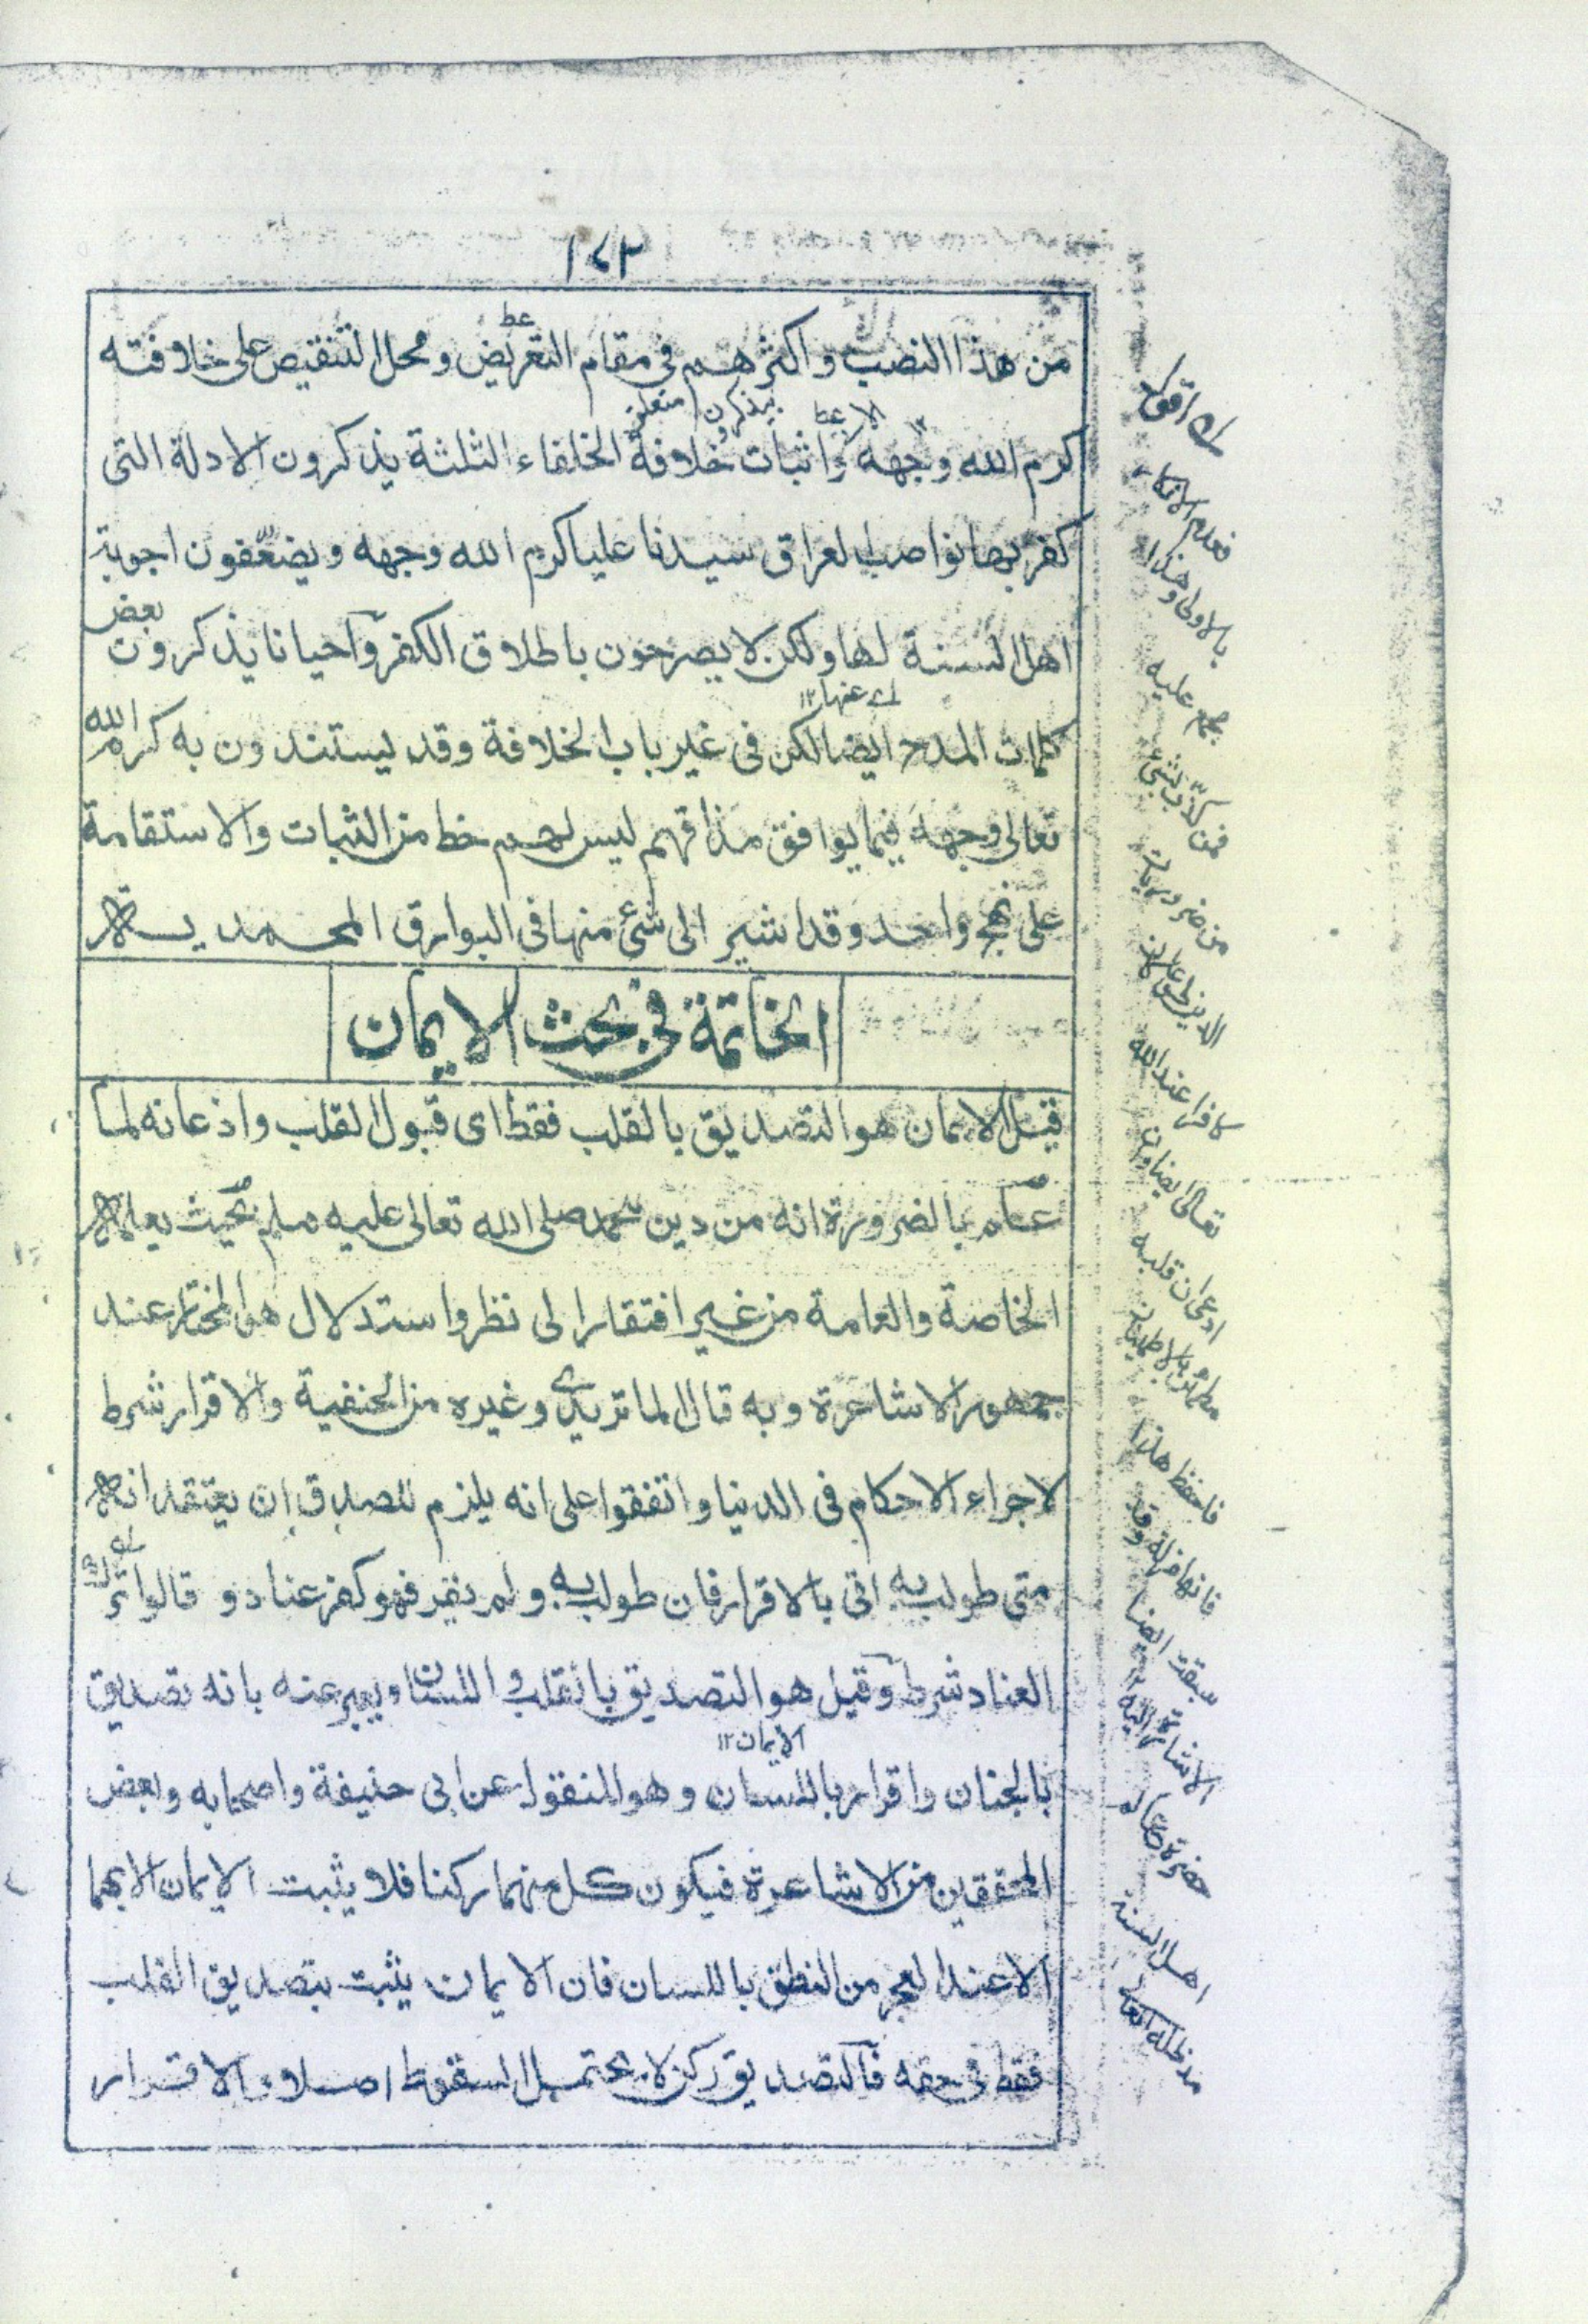 ١٤٣
من هذا النصب واكثرهم في مقام التعريض ومحل التنقيص على خلافته
كرم الله وجهه واثبات خلافة الخلفاء الثلثة يذكرون الادلة التى
كفر بها نواصب العراق سيدنا عليا كرم الله وجهه ويضعّفون اجوبة
اهل السنة لها ولكن لا يصرحون باطلاق الكفر واحيانا يذكرون بعض
اے عنها ١٢
كلمات المدح ايضا لكن فى غير باب الخلافة وقد يستندون به كرم الله
تعالى وجهه فيما يوافق مذاقهم ليس لهم حظ من الثبات والاستقامة
على نهج واحد وقد اشير الى شئ منها فى البوارق المحمدية
الخاتمة في بحث الايمان
قيل الايمان هو التصديق بالقلب فقط اى قبول القلب واذعانه لما
علم بالضرورة انه من دين محمد صلى الله تعالى عليه وسلم بحيث يعلمه
الخاصة والعامة من غير افتقار الى نظر واستدلال هو المختار عند
جمهور الاشاعرة وبه قال الماتريدي وغيره من الحنفية والاقرار شرط
لاجراء الاحكام فى الدنيا واتفقوا على انه يلزم للمصدق ان يعتقد انه
متى طولب به اتى بالاقرار فان طولب به ولم يقر فهو كفر عناد وقالوا ترك
العناد شرط وقيل هو التصديق بالقلب واللسان ويعبر عنه بانه تصديق
الايمان ١٢
بالجنان واقرار باللسان وهو المنقول عن ابى حنيفة واصحابه وبعض
المحققين من الاشاعرة فيكون كل منهما ركنا فلا يثبت الايمان الا بهما
الا عند العجز من النطق باللسان فان الايمان يثبت بتصديق القلب
فقط فى حقه فالتصديق ركن لا يحتمل السقوط اصلا والاقرار
اقول
فعلم
بالاولى وهذا
مجمع عليه
فمن كذّب بشئ
من ضروريات
الدين طوعا كان
كافرا عند الله
تعالى ايضا وان
ادعى ان قلبه
مطمئن بالايمان
فاحفظ هذا
فانها مزلة وقد
سبقت ايضا
الاشارة اليه ١٢
حضرة عالم
اهل السنة
مد ظله العالى